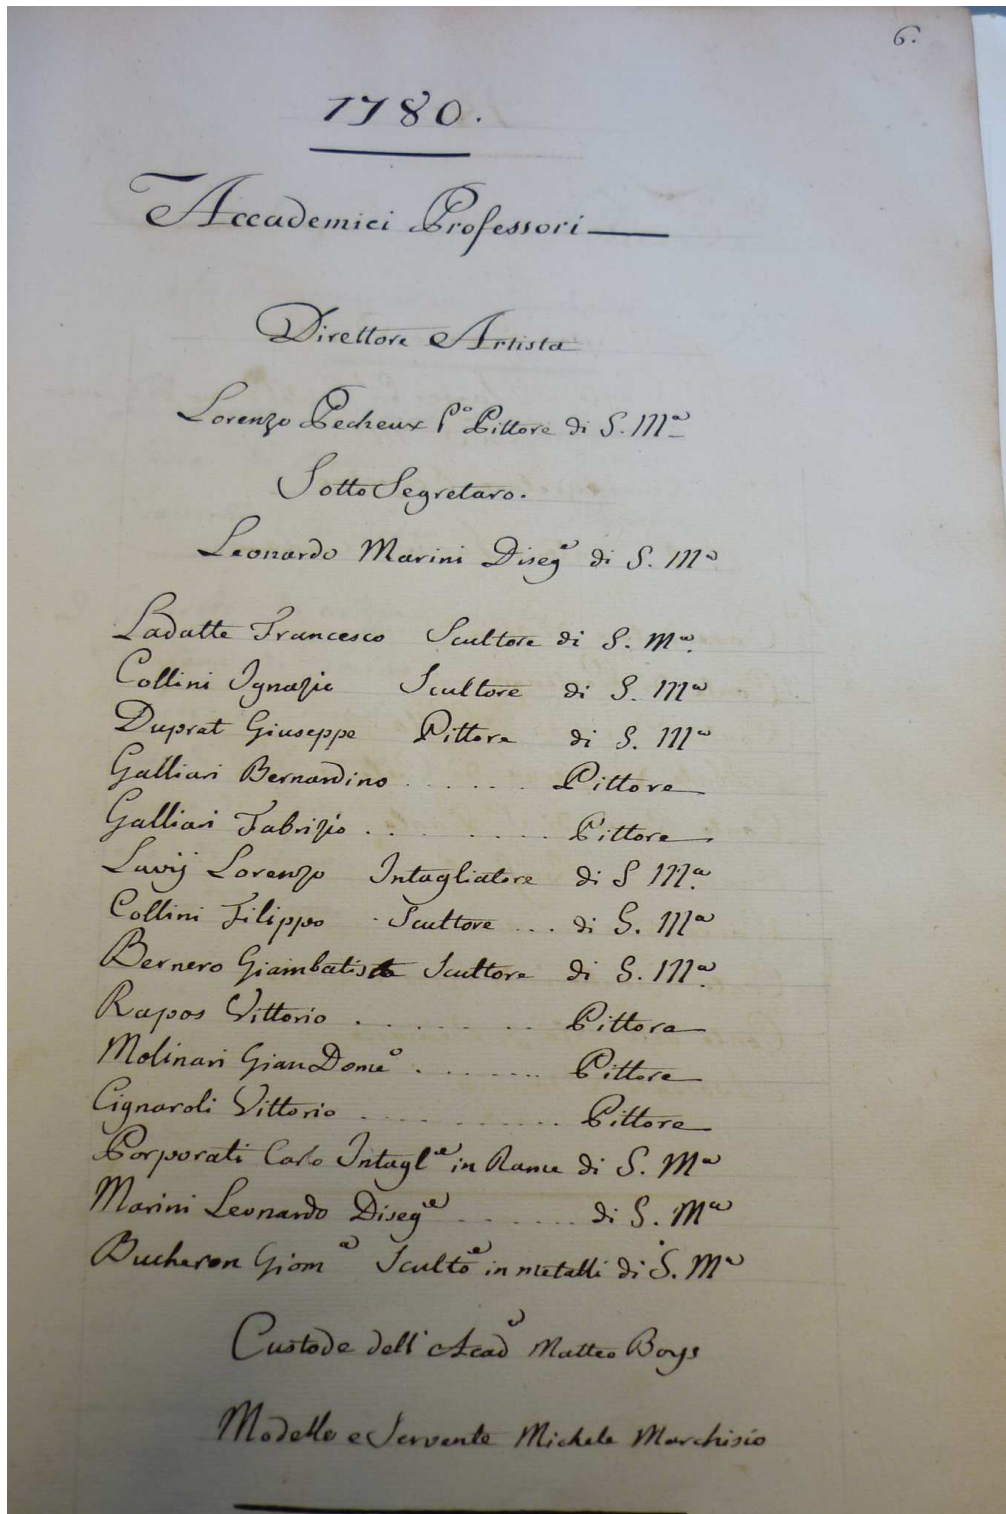 6.
1780.
Accademici Professori
Direttore Artista
Lorenzo Pecheux P.º Pittore di S. Mª
Sotto Segretaro.
Leonardo Marini Disegᵉ di S. Mª
Ladatte Francesco Scultore di S. Mª.
Collini Ignazio Scultore di S. Mª
Duprat Giuseppe Pittore di S. Mª
Galliari Bernardino . . . . . . Pittore
Galliari Fabrizio . . . . . . . . . Pittore
Lavÿ Lorenzo Intagliatore di S Mª.
Collini Filippo Scultore ... di S. Mª
Bernero Giambatista Scultore di S. Mª.
Rapos Vittorio . . . . . . . . Pittore
Molinari GianDomeº . . . . . . . . Pittore
Cignaroli Vittorio . . . . . . . . . . Pittore
Porporati Carlo Intaglʳᵉ in Rame di S. Mª
Marini Leonardo Disegʳᵉ . . . . . . . di S. Mª
Bucheron Giomª Scultoᵉ in metalli di S. Mª
Custode dell' Acadª Matteo Boys
Modello e Servente Michele Marchisio